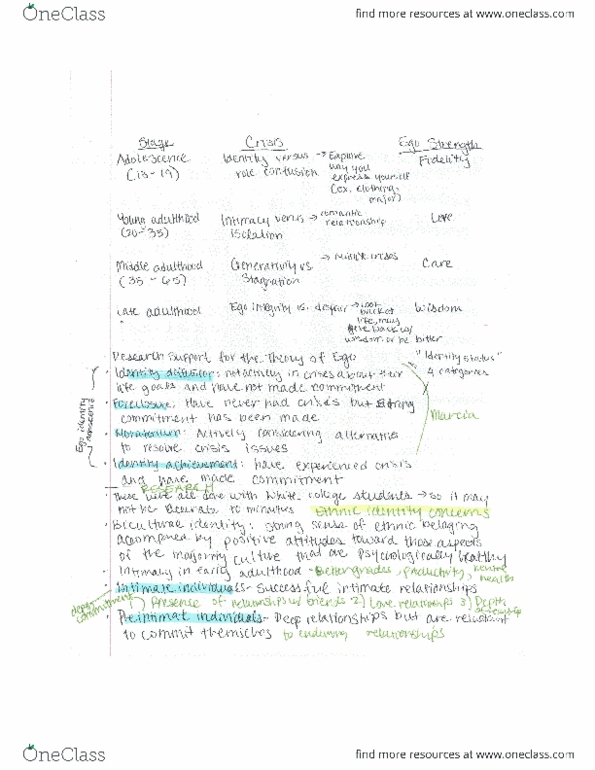 OneClass
find more resources at www.oneclass.com
Stage Crisis Ego Strength
Adolescence Identity versus → Explore Fidelity
(13-19) role confusion way you
express yourself
(ex. clothing,
major)
Young adulthood Intimacy versus → romantic Love
(20-35) isolation relationship
Middle adulthood Generativity vs → midlife crises Care
(35 - 65) Stagnation
Late adulthood Ego integrity vs. despair → look Wisdom
back at
life, may
give back w/
wisdom or be bitter
Research Support for the Theory of Ego "Identity status"
4 categories
• Identity diffusion: not actively in crises about their
life goals and have not made commitment
• Foreclosure: Have never had crises but strong
commitment has been made
Marcia
Ego identity
• Moratorium: Actively considering alternatives
to resolve crisis issues
• Identity achievement: have experienced crisis
and have made commitment
RESEARCH
These were all done with White college students → so it may
not be accurate to minorities Ethnic identity concerns
• Bicultural identity: strong sense of ethnic belonging
by positive attitudes toward those aspects
of the majority culture that are psychologically healthy
• Intimacy in early adulthood - Better grades, productivity, mental
health
• Intimate individuals - successful intimate relationships
commitment
1) Presence of relationships w/ friends 2) Love relationships 3) Depth
• Preintimate individuals - Deep relationships but are reluctant
to commit themselves to enduring relationships
OneClass
find more resources at www.oneclass.com